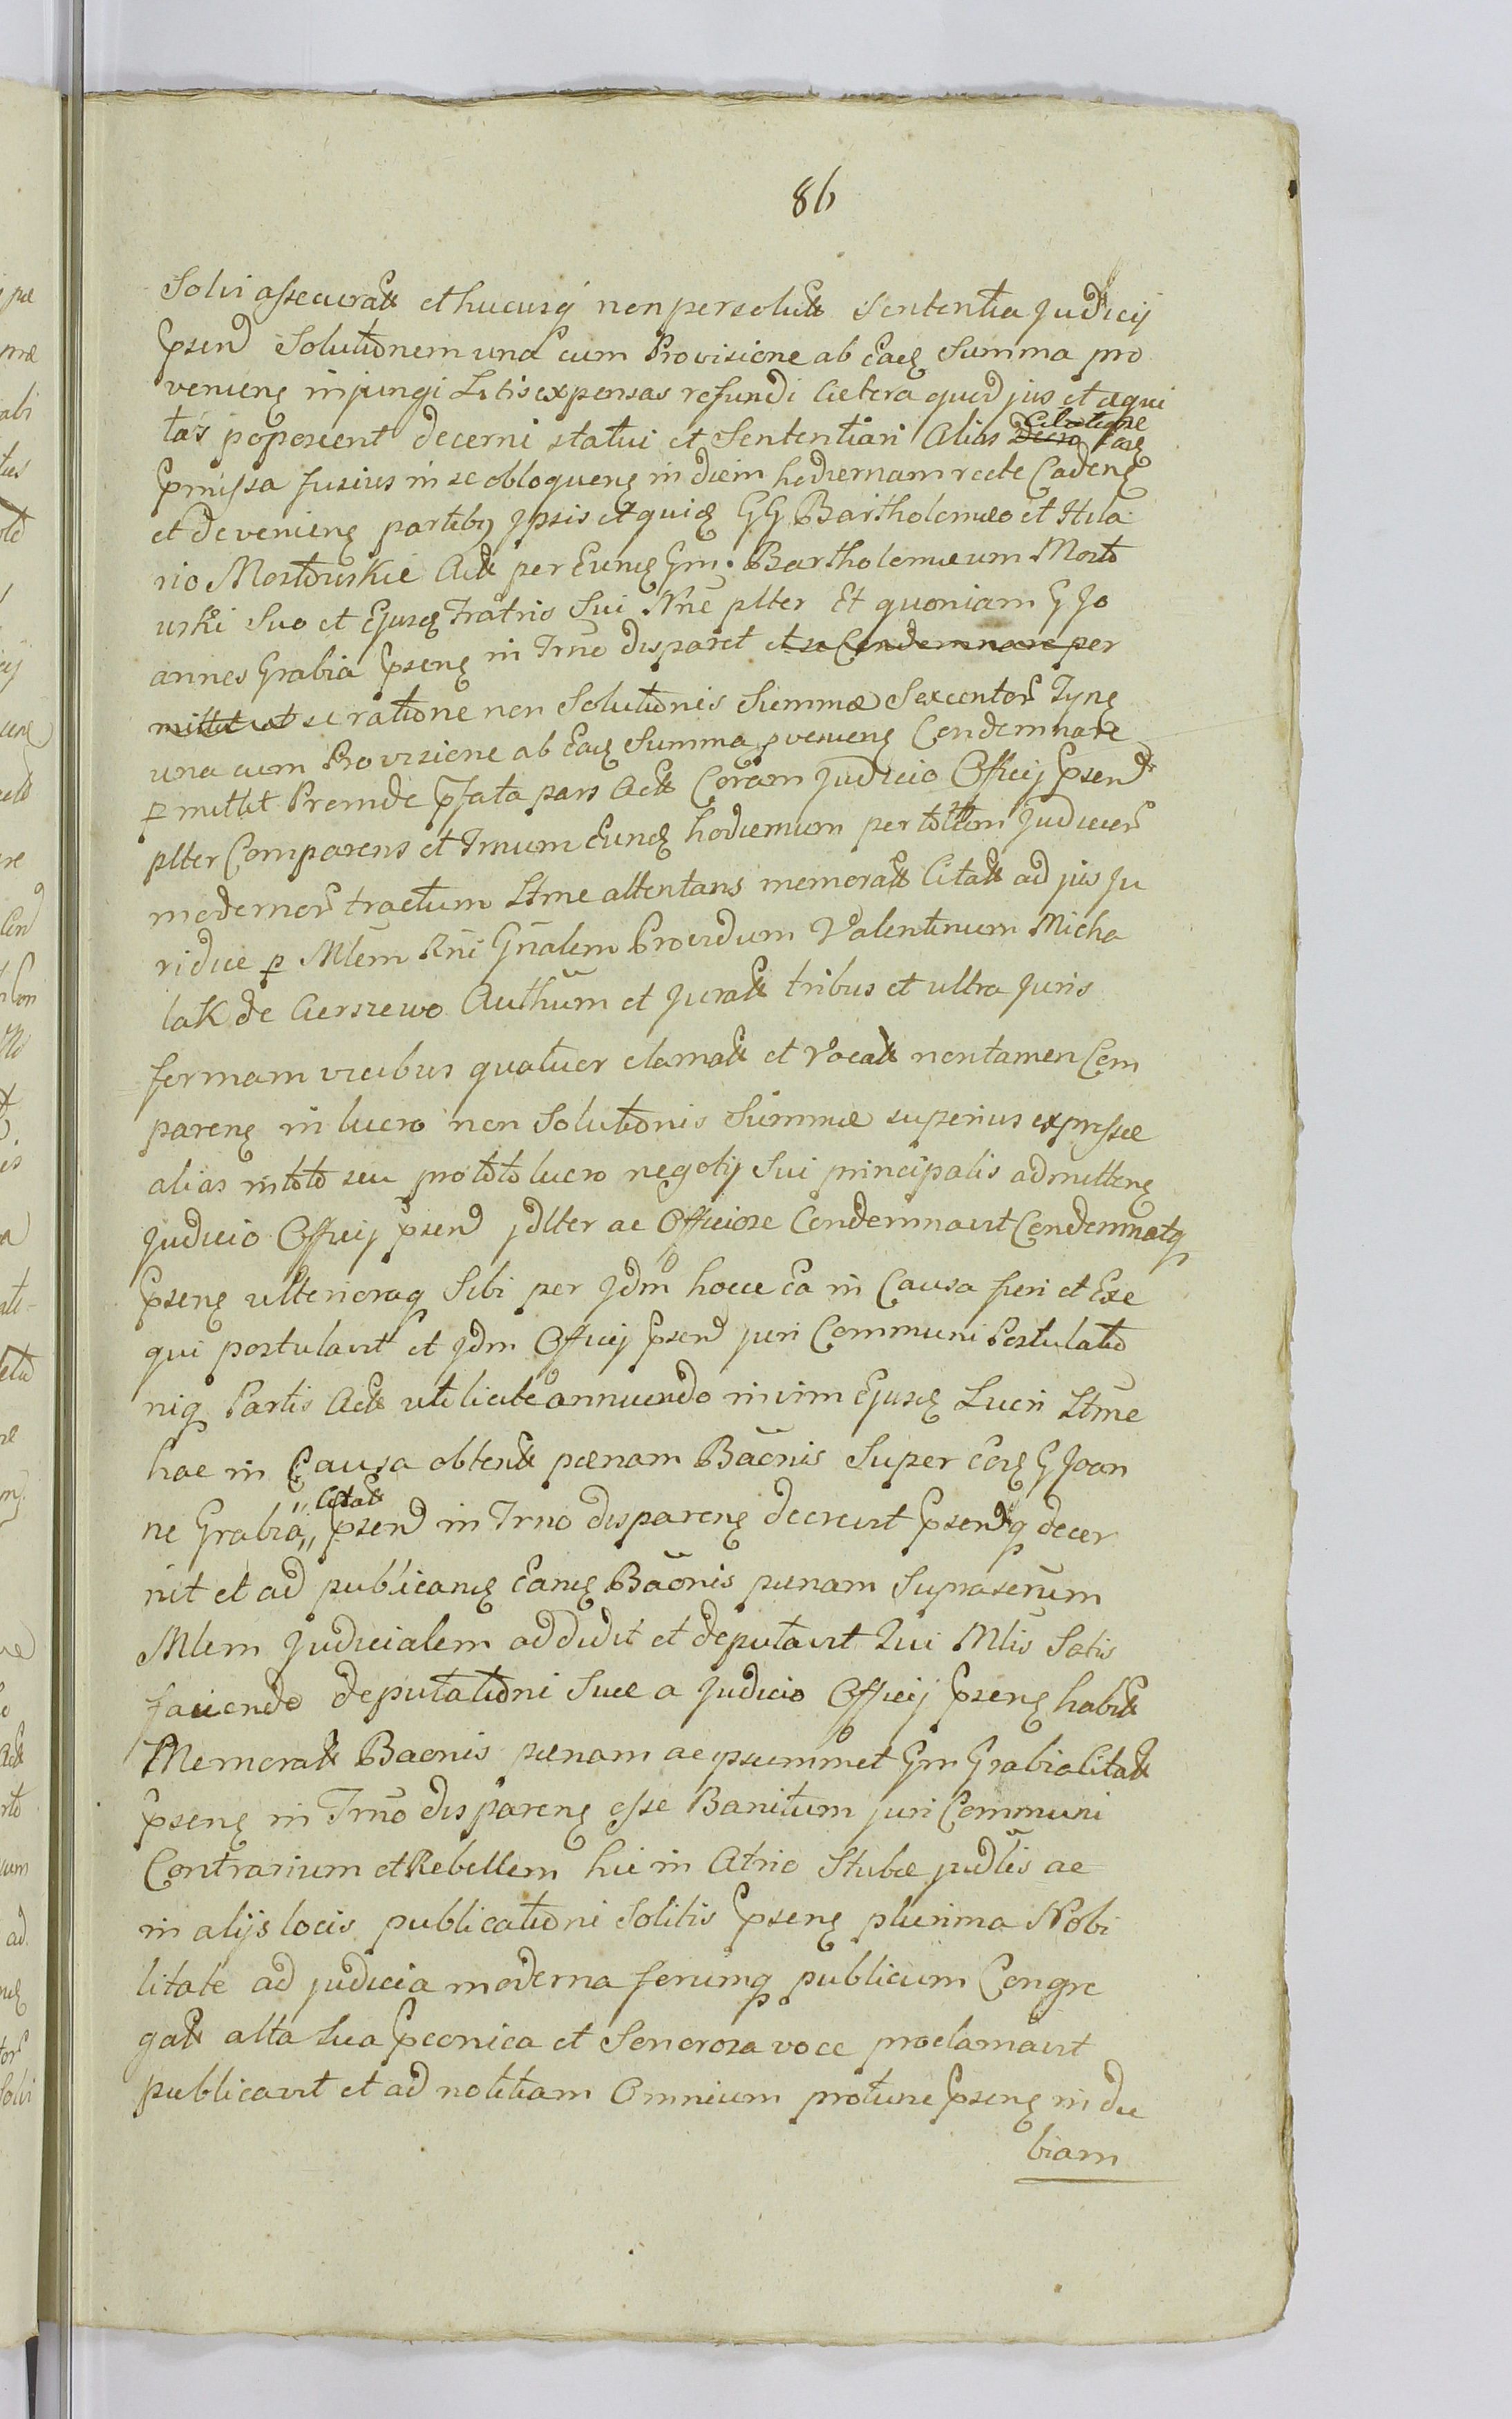 86
Solvi assecurat et hucusq non persolut Sententia Judicij
Psen Solutionem una cum Provisione ab Eadq Summa pro
venienq injungi Litis expensas refundi Caetera quod jus et aequi
tas poposcerit decerni statui et Sententiari Alias Citatione Eadq
Pmissa fusius in se obloquenq in diem hodiernam recte Cadenq
et devenienq partibq Ipsis et quidq GG Bartholomeo et Hila
rio Mostowskie Act per Eumq Gm. Bartholomeum Mosto
wski Suo et Ejusdq Fratris Sui Nne plter Et quoniam G Jo
annes Grabia Psenq in Trno disparet et se Condemnare per
mittit ut se ratione non Solutionis Summae Sexcentor Tynq
una cum Provisione ab Eadq Summa pvenienq Condemnare
pmittit Proinde Pfata pars Act Coram Judicio Officij Psend
plter Comparens et Trnum Eundq hodiernum per totum Judicior
modernor tractum Ltme attentans memorat Citat ad jus Ju
ridice p Mlem Rni Gnalem Providum Valentinum Micha
lak de Cerszewo Authum et Jurat tribus et ultra Juris
formam vicibus quatuor clamat et vocat non tamen Com
parenq in lucro non Solutionis Summae superius expressae
alias in toto seu pro toto lucro negotij Sui principalis admittenq
Judicio Officij Psend jdlter ac Officiose Condemnavit Condemnatq
Psenq ulterioraq Sibi per Jdm hocce Ea in Causa fieri et Exe
qui postulavit Et Jdm Officij Psend juri Communi Postulatio
niq Partis Act uti licite annuendo in vim Ejusdq Lucri Ltme
hac in Causa obtent paenam Baonis Super Eodq G Joan
ne Grabia,, Citat Psend in Trno disparenq decrevit Psendq decer
nit et ad publicandq Eandq Baonis paenam Suprascrum
Mlem Judicialem addidit et deputavit Qui Mlis Satis
faciendo deputationi Suae a Judicio Officij Psenq habit
Memorat Baonis paenam ac ipsummet Gm Grabia Citat
Psenq in Trno disparenq esse Banitum juri Communi
Contrarium et Rebellem hic in Atrio Stubae judlis ac
in alijs locis publicationi Solitis Psenq plurima Nobi
litate ad judicia moderna forumq publicum Congre
gat alta Sua Pconica et Sonorosa voce proclamavit
publicavit et ad notitiam Omnium protunc Psenq indu
biam